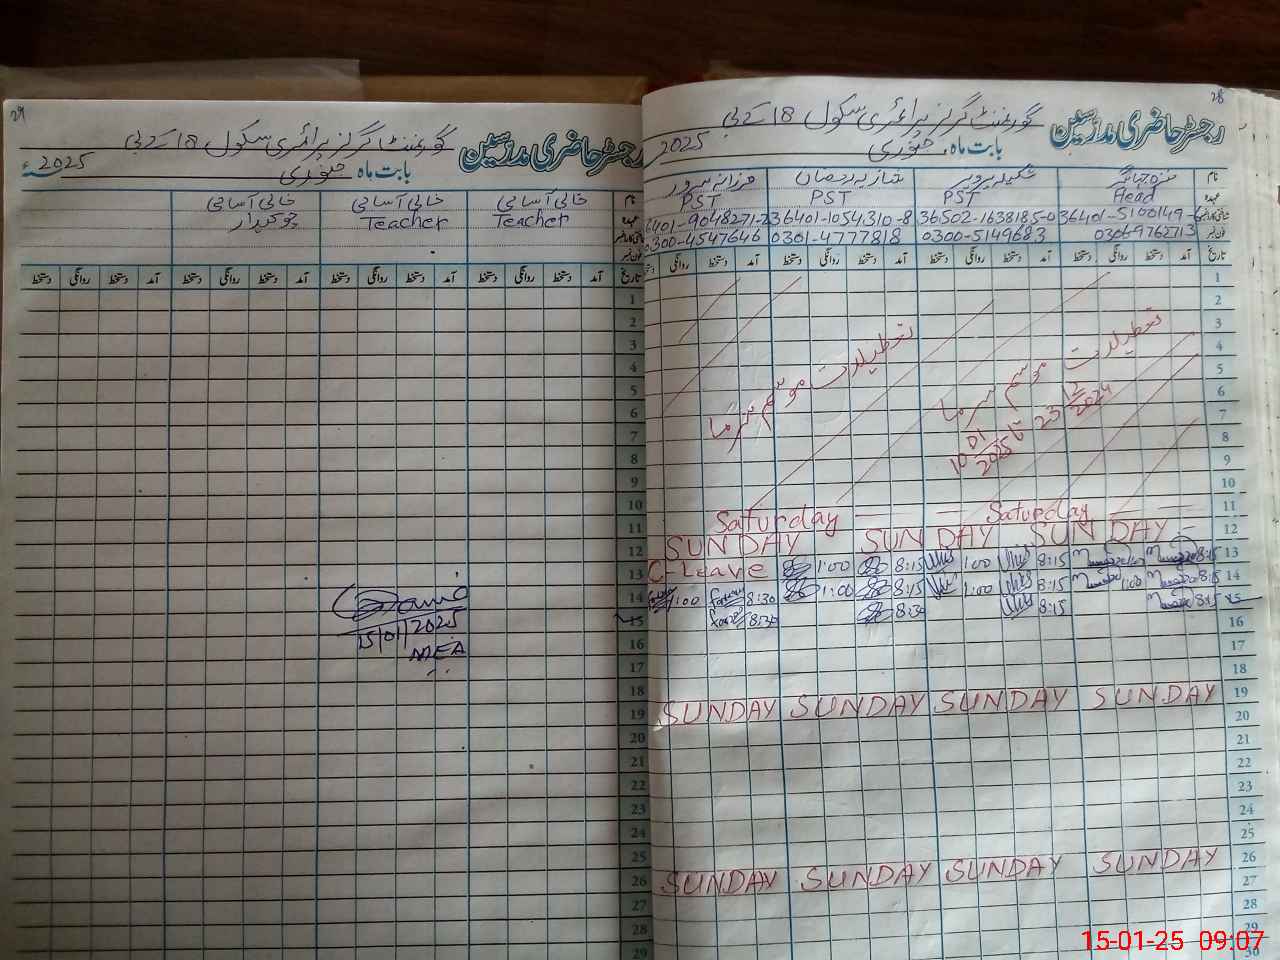 29
گورنمنٹ گرلز پرائمری سکول 18 کے بی
رجسٹر حاضری مدرسین
بابت ماہ جنوری 2025ء
نام خالی آسامی خالی آسامی خالی آسامی
عہدہ Teacher Teacher چوکیدار
تاریخ آمد دستخط روانگی دستخط آمد دستخط روانگی دستخط آمد دستخط روانگی دستخط آمد دستخط روانگی دستخط
1
2
3
4
5
6
7
8
9
10
11
12
13
14
15
16
17
18
19
20
21
22
23
24
25
26
27
28
29
15/01/2025
MEA
28
گورنمنٹ گرلز پرائمری سکول 18 کے بی
رجسٹر حاضری مدرسین
بابت ماہ جنوری 2025
نام شکیلہ پروین شازیہ رحمان فرزانہ سرور
عہدہ Head PST PST PST
36401-5100149-6 36502-1638185-0 36401-1054310-8 36401-9048271-2
فون نمبر 0306-9762713 0300-5149683 0301-4777818 0300-4547646
تاریخ آمد دستخط روانگی دستخط آمد دستخط روانگی دستخط آمد دستخط روانگی دستخط آمد دستخط روانگی دستخط
1
2
3
4
5
6
7
8
9
10
تعطیلات موسم سرما
تعطیلات موسم سرما
23 12/2024 تا 10 01/2025
11 Saturday Saturday
12 SUNDAY SUNDAY SUNDAY
13 8:15 8:15 1:00 8:15 1:00 C-Leave
14 8:15 1:00 8:15 1:00 8:15 1:00 8:30 1:00
15 8:15 8:15 8:30 8:30
16
17
18
19 SUNDAY SUNDAY SUNDAY SUNDAY
20
21
22
23
24
25
26 SUNDAY SUNDAY SUNDAY SUNDAY
27
28
29
30
15-01-25 09:07